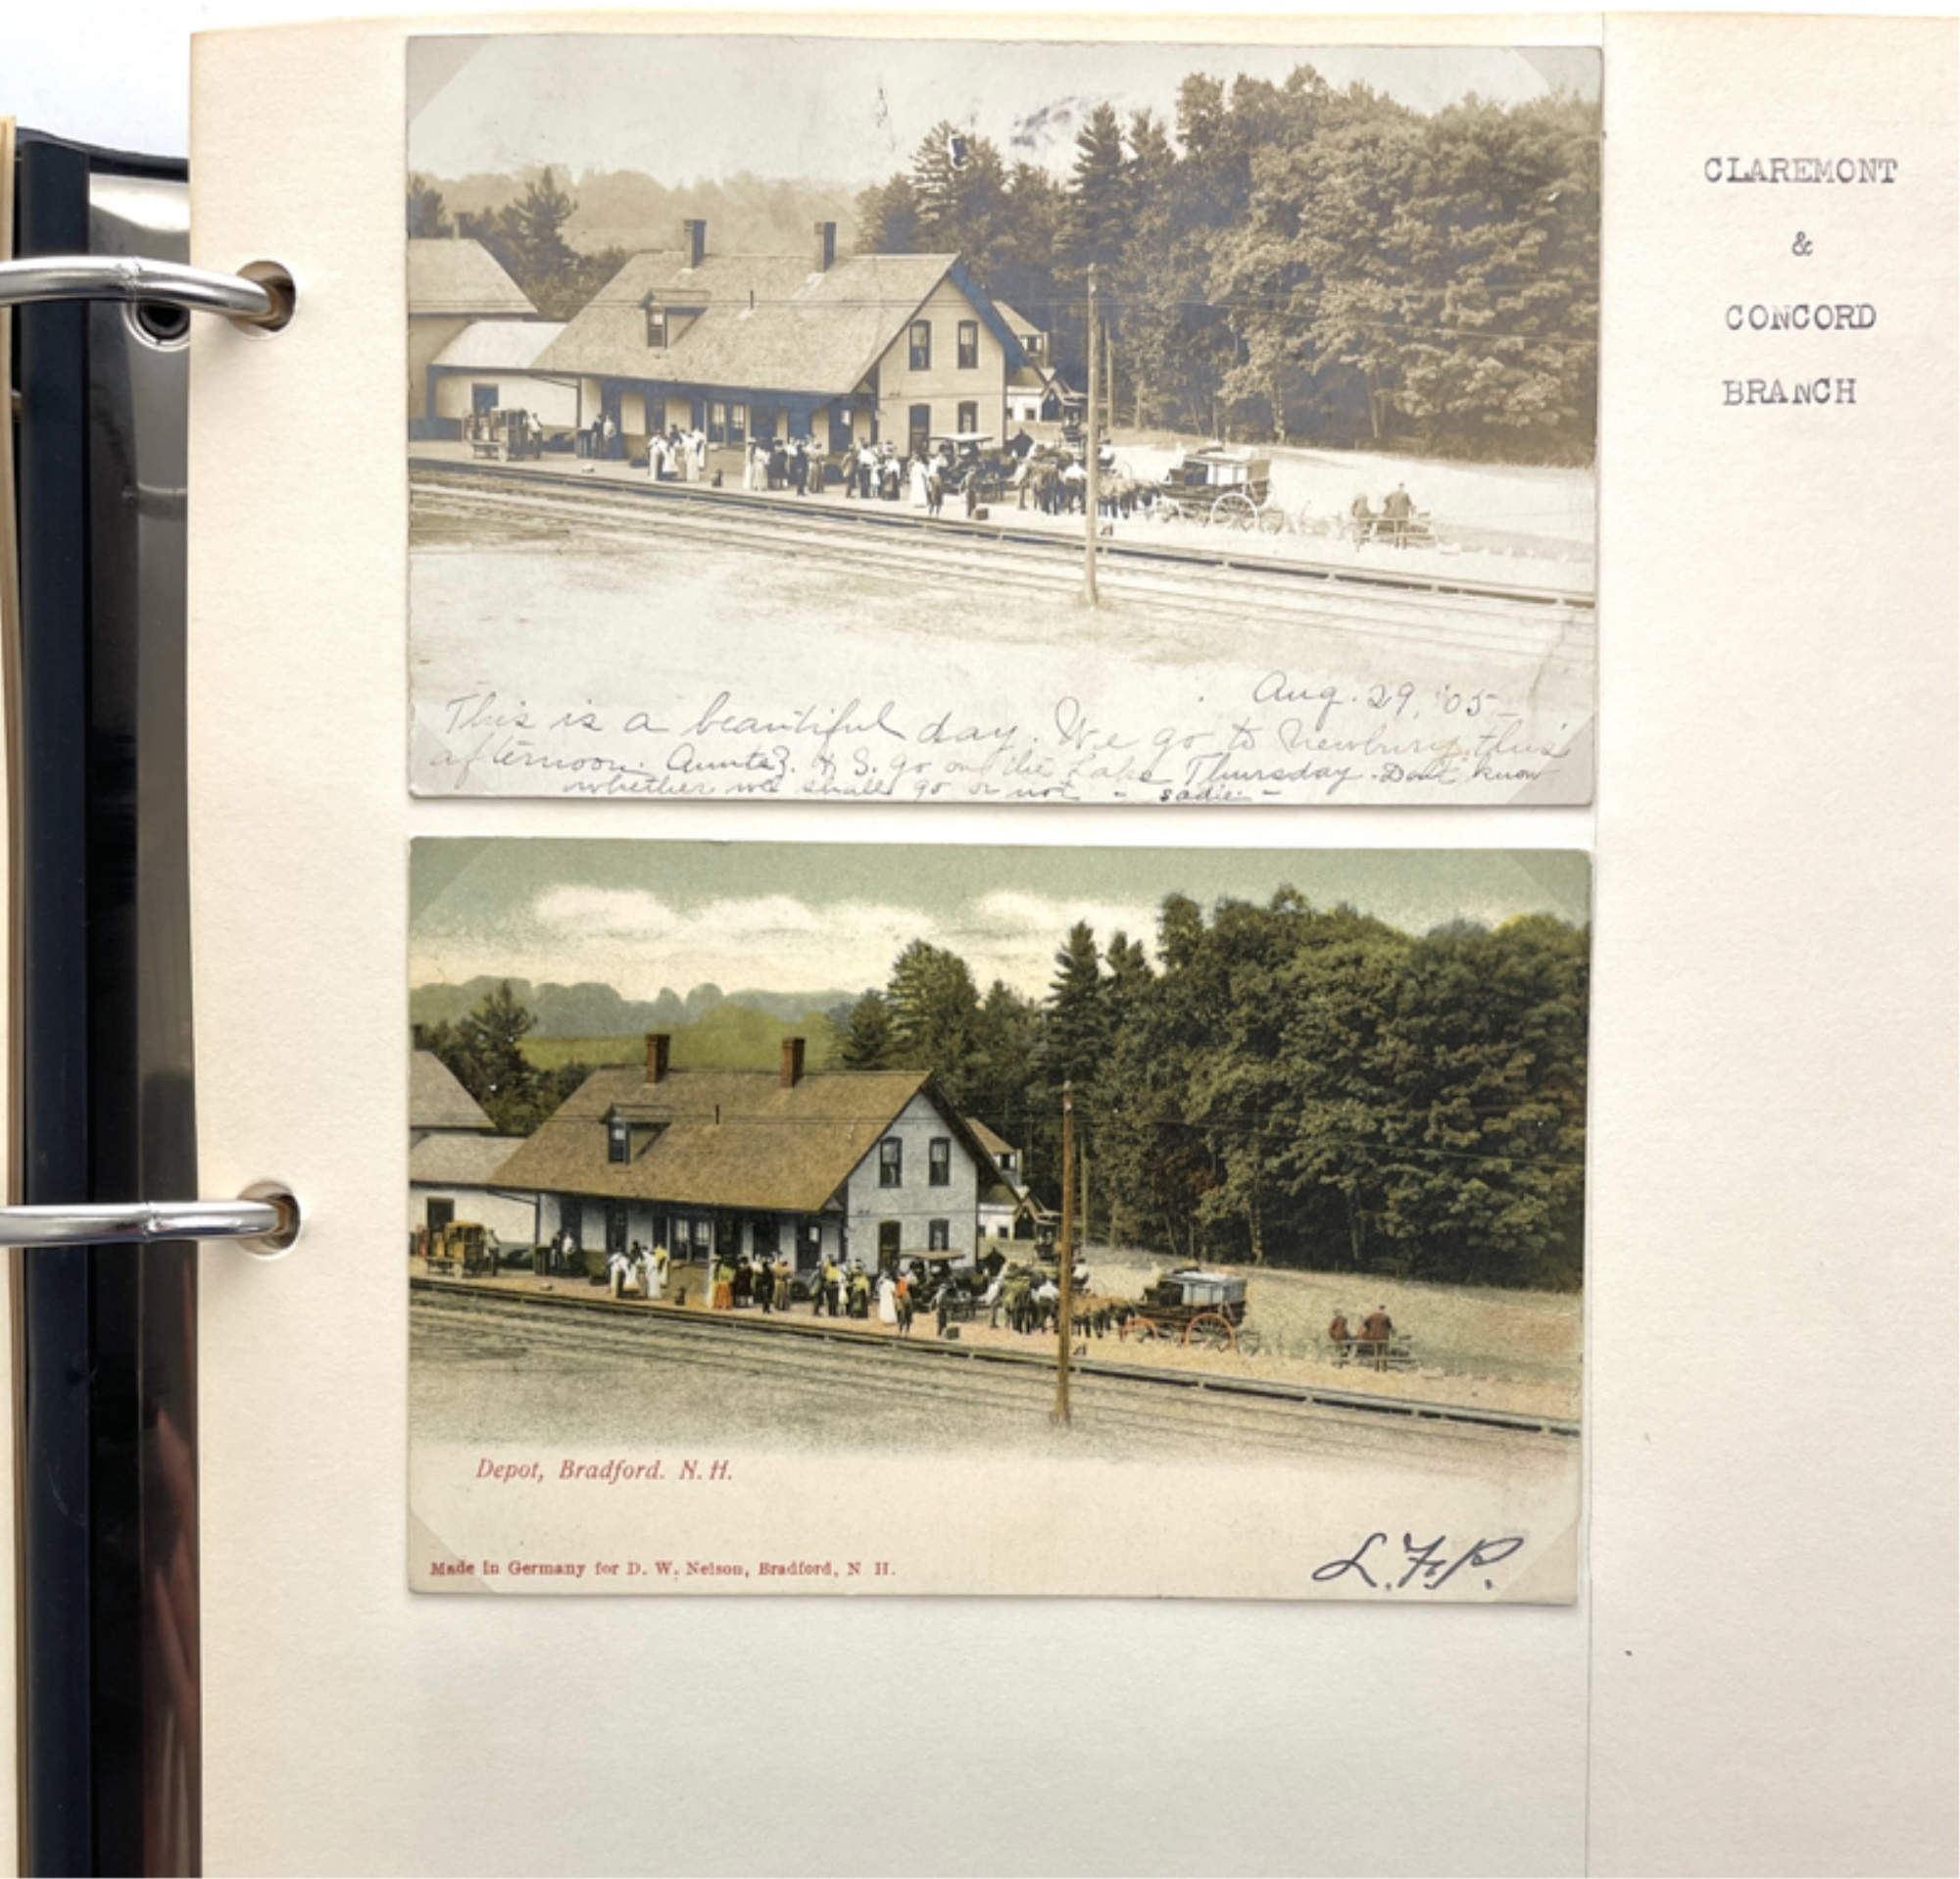 Aug. 29, '05
This is a beautiful day. We go to Newbury this
afternoon. Aunts Z. & S. go on the Lake Thursday. Don't know
whether we shall go or not - Sadie -
CLAREMONT
&
CONCORD
BRANCH
Depot, Bradford. N. H.
Made in Germany for D. W. Nelson, Bradford, N H.
L.F.P.